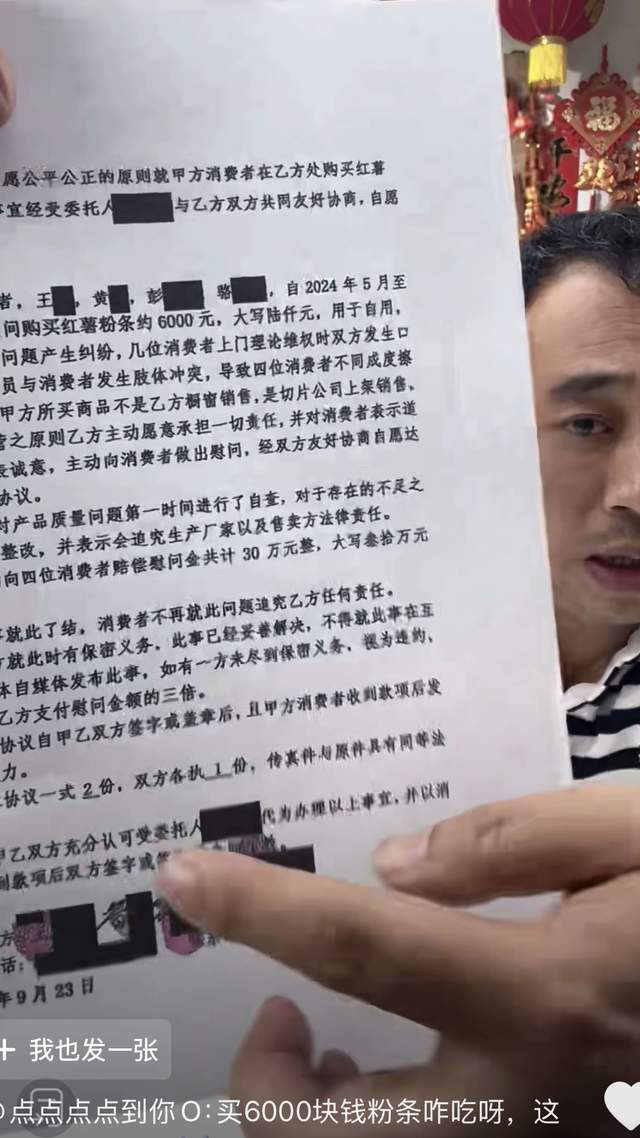 福
愿公平公正的原则就甲方消费者在乙方处购买红薯
事宜经受委托人 与乙方双方共同友好协商，自愿
者，王 ，黄 ，彭 骆 ，自 2024 年 5 月至
间购买红薯粉条约 6000 元，大写陆仟元，用于自用，
问题产生纠纷，几位消费者上门理论维权时双方发生口
员与消费者发生肢体冲突，导致四位消费者不同成度擦
甲方所买商品不是乙方橱窗销售，是切片公司上架销售。
营之原则乙方主动愿意承担一切责任，并对消费者表示道
表诚意，主动向消费者做出慰问，经双方友好协商自愿达
协议。
对产品质量问题第一时间进行了自查，对于存在的不足之
整改，并表示会追究生产厂家以及售卖方法律责任。
向四位消费者赔偿慰问金共计 30 万元整，大写叁拾万元
就此了结，消费者不再就此问题追究乙方任何责任。
方就此时有保密义务，此事已经妥善解决，不得就此事在互
体自媒体发布此事，如有一方未尽到保密义务，视为违约，
乙方支付慰问金额的三倍。
协议自甲乙双方签字或盖章后，且甲方消费者收到款项后发
力。
协议一式 2 份，双方各执 1 份，传真件与原件具有同等法
甲乙双方充分认可受委托人 代为办理以上事宜，并以消
到款项后双方签字或
方
话：
年 9 月 23 日
+ 我也发一张
@点点点点到你O:买6000块钱粉条咋吃呀，这